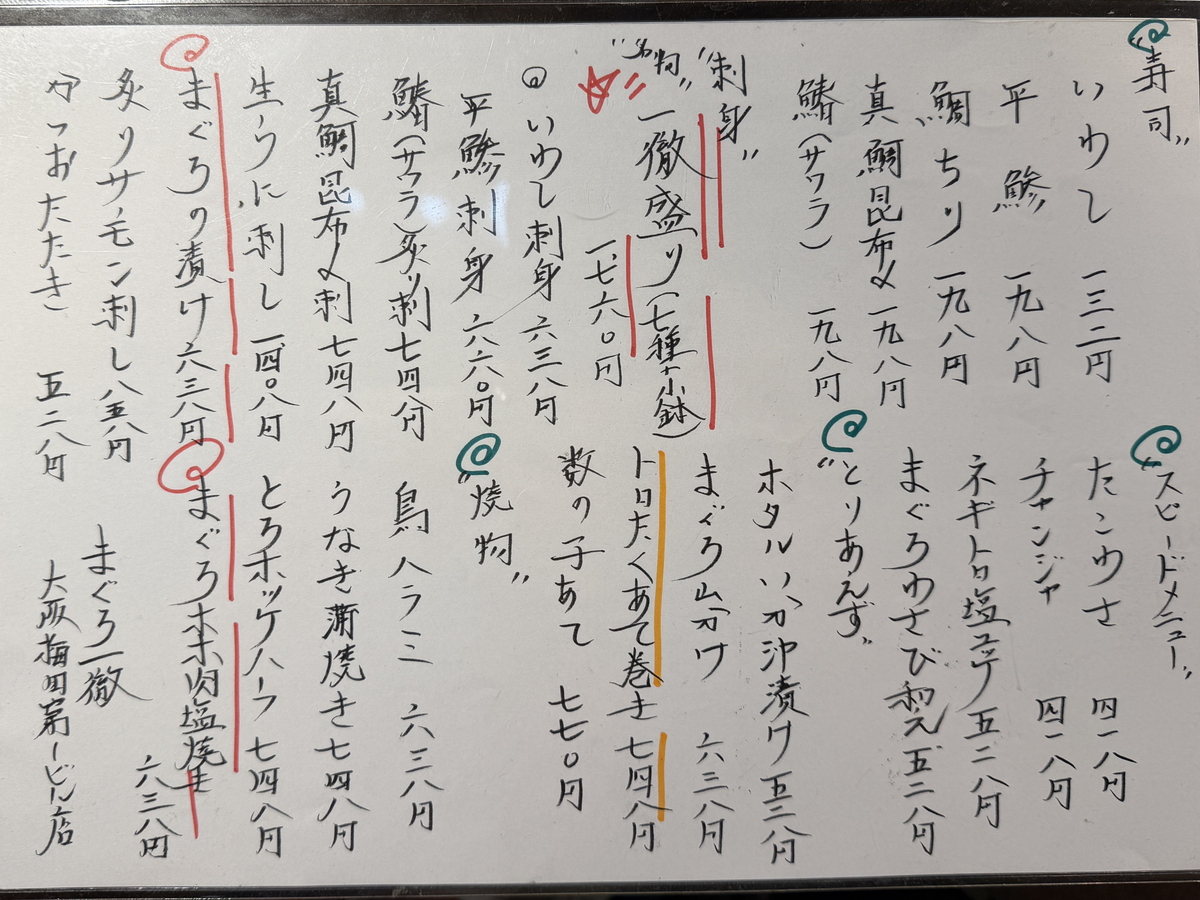 "寿司"
いわし 一三二円
平鯵 一九八円
鯛ちり 一九八円
真鯛昆布〆 一九八円
鰆(サワラ) 一九八円
"刺身"
"名物"
一徹盛り(七種+小鉢)
一、七六〇円
◎いわし刺身 六三八円
平鯵刺身 六六〇円
鰆(サワラ)炙り刺 七四八円
真鯛昆布〆刺 七四八円
生うに刺し 一、四〇八円
まぐろの漬け 六三八円
炙りサモン刺し 八五八円
かつおたたき 五二八円
"スピードメニュー"
たこわさ 四一八円
チャンジャ 四一八円
ネギトロ塩ユッケ 五二八円
まぐろわさび和え 五二八円
"とりあえず"
ホタルいか沖漬け 五二八円
まぐろ山かけ 六三八円
トロたくあて巻き 七四八円
数の子あて 七七〇円
"焼物"
鳥ハラミ 六三八円
うなぎ蒲焼き 七四八円
とろホッケハーフ 七四八円
まぐろホホ肉塩焼き
六三八円
まぐろ一徹
大阪梅田第1ビル店